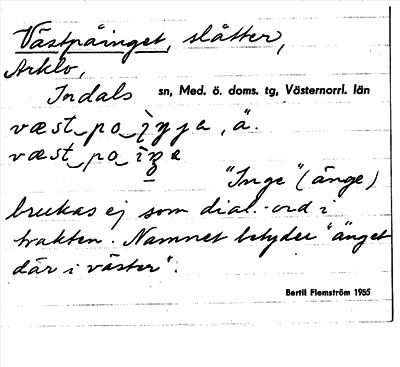 Västpåinget, slåtter,
Arklo,
Indals sn, Med. ö. doms. tg, Västernorrl. län
væst‿po‿
væst‿po‿
"Inge" (änge)
brukas ej som dial.-ord i
trakten. Namnet betyder "änget
där i väster".
Bertil Flemström 1955